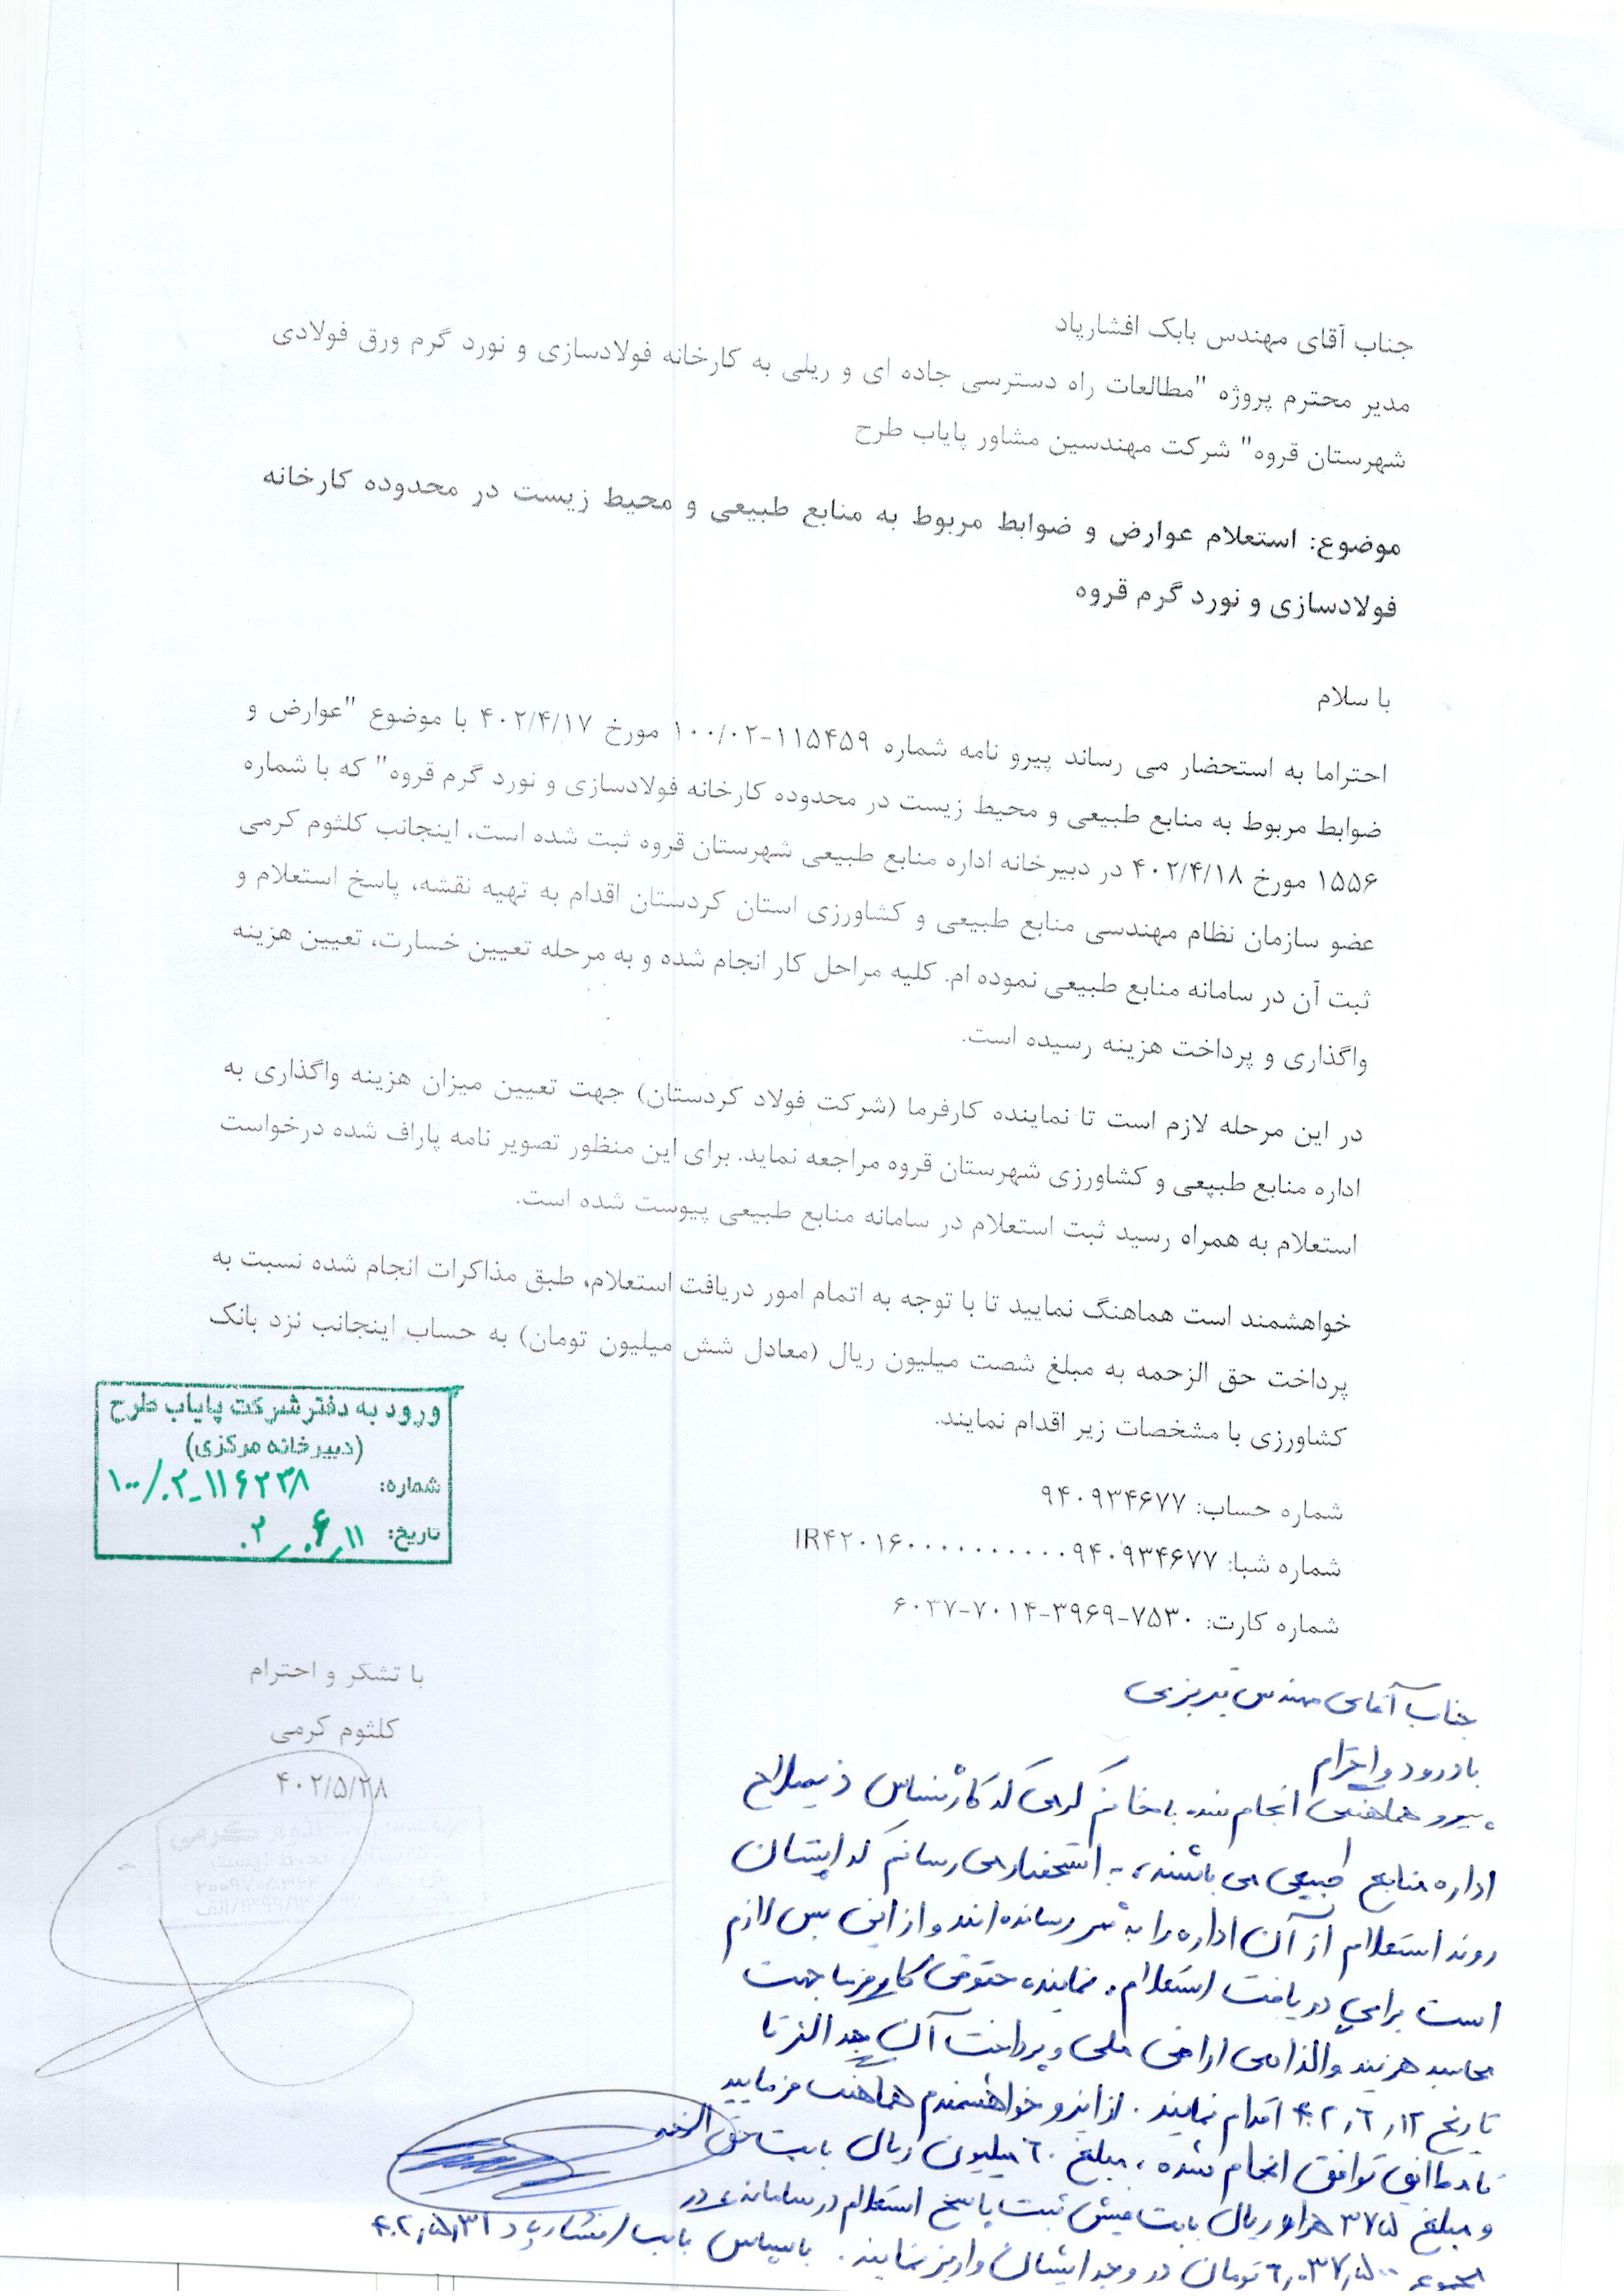 جناب آقای مهندس بابک افشارپاد
مدیر محترم پروژه "مطالعات راه دسترسی جاده ای و ریلی به کارخانه فولادسازی و نورد گرم ورق فولادی
شهرستان قروه" شرکت مهندسین مشاور پایاب طرح
موضوع: استعلام عوارض و ضوابط مربوط به منابع طبیعی و محیط زیست در محدوده کارخانه
فولادسازی و نورد گرم قروه
با سلام
احتراما به استحضار می رساند پیرو نامه شماره ۱۱۵۴۵۹-۱۰۰/۰۲ مورخ ۴۰۲/۴/۱۷ با موضوع "عوارض و
ضوابط مربوط به منابع طبیعی و محیط زیست در محدوده کارخانه فولادسازی و نورد گرم قروه" که با شماره
۱۵۵۶ مورخ ۴۰۲/۴/۱۸ در دبیرخانه اداره منابع طبیعی شهرستان قروه ثبت شده است، اینجانب کلثوم کرمی
عضو سازمان نظام مهندسی منابع طبیعی و کشاورزی استان کردستان اقدام به تهیه نقشه، پاسخ استعلام و
ثبت آن در سامانه منابع طبیعی نموده ام. کلیه مراحل کار انجام شده و به مرحله تعیین خسارت، تعیین هزینه
واگذاری و پرداخت هزینه رسیده است.
در این مرحله لازم است تا نماینده کارفرما (شرکت فولاد کردستان) جهت تعیین میزان هزینه واگذاری به
اداره منابع طبیعی و کشاورزی شهرستان قروه مراجعه نماید. برای این منظور تصویر نامه پاراف شده درخواست
استعلام به همراه رسید ثبت استعلام در سامانه منابع طبیعی پیوست شده است.
خواهشمند است هماهنگ نمایید تا با توجه به اتمام امور دریافت استعلام، طبق مذاکرات انجام شده نسبت به
پرداخت حق الزحمه به مبلغ شصت میلیون ریال (معادل شش میلیون تومان) به حساب اینجانب نزد بانک
کشاورزی با مشخصات زیر اقدام نمایند.
شماره حساب: ۹۴۰۹۳۴۶۷۷
شماره شبا: IR۴۲۰۱۶۰۰۰۰۰۰۰۰۰۰۰۹۴۰۹۳۴۶۷۷
شماره کارت: ۶۰۳۷-۷۰۱۴-۳۹۶۹-۷۵۳۰
ورود به دفتر شرکت پایاب طرح
(دبیرخانه مرکزی)
شماره: ۱۰۰/۰۲-۱۱۶۲۳۸
تاریخ: ۰۲/۰۶/۱۱
با تشکر و احترام
کلثوم کرمی
۴۰۲/۵/۲۸
جناب آقای مهندس تبریزی
با درود و احترام
پیرو هماهنگی انجام شده با خانم کرمی که کارشناس ذیصلاح
اداره منابع طبیعی می باشند، به استحضار می رسانم که ایشان
روند استعلام از آن اداره را به ثمر رسانده اند و از این پس لازم
است برای دریافت استعلام، نماینده حقوقی کارفرما جهت
محاسبه هزینه واگذاری اراضی ملی و پرداخت آن حداکثر تا
تاریخ ۴۰۲/۶/۱۲ اقدام نمایند. از اینرو خواهشمندم هماهنگ فرمایید
تا مطابق توافق انجام شده، مبلغ ۶۰ میلیون ریال بابت حق الزحمه
و مبلغ ۳۷۵ هزار ریال بابت فیش ثبت پاسخ استعلام در سامانه، در
مجموع ۶,۰۳۷,۵۰۰ تومان در وجه ایشان واریز نمایند. با سپاس بابک افشارپاد ۴۰۲/۵/۳۱